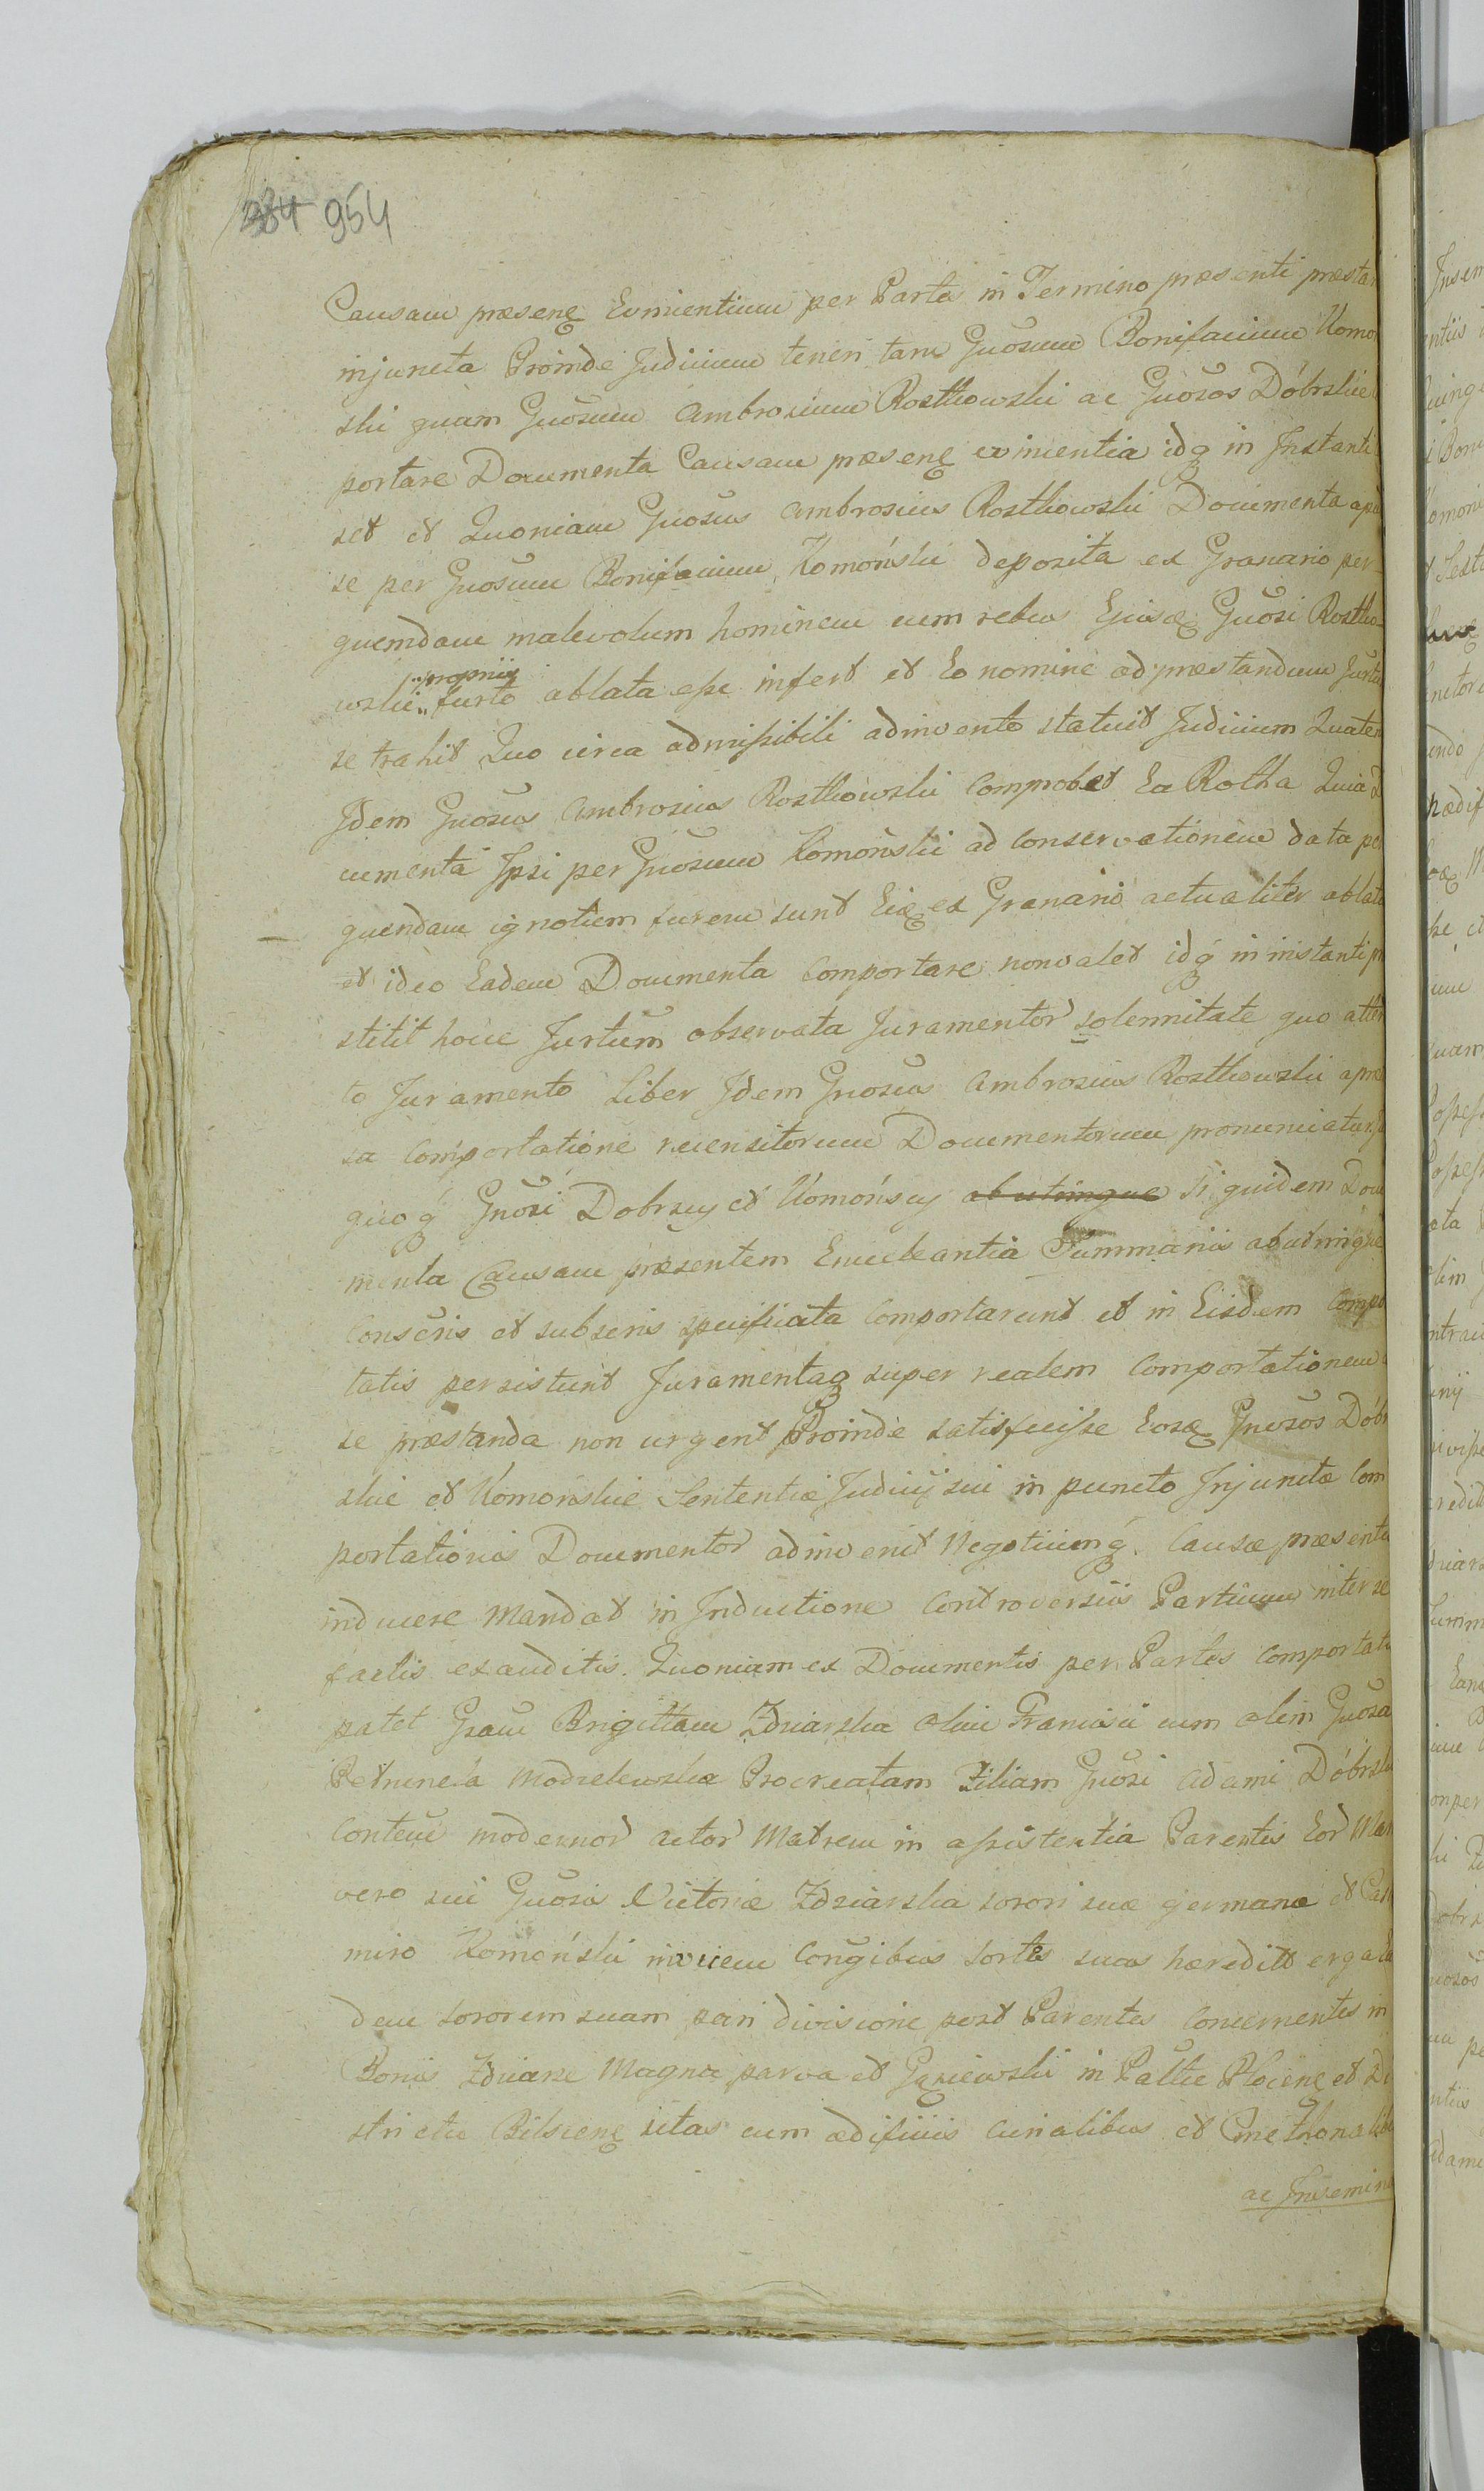 384 954
Causam præsenę Evinientium per Partes in Termino præsenti præstar
injuncta Proinde Judicium teneri tam Gnosum Bonifacium Komoń
ski quam Gnosum Ambrosium Rostkowski ac Gnosos Dóbrskie
portare Documenta Causam præsenę evinientia idq in Instanti
set et Quoniam Gnosus Ambrosius Rostkowski Documenta apud
se per Gnosum Bonifacium Komoński deposita ex Granario per
quemdam malevolum hominem cum rebus Ejusdę Gnosi Rostko
wski propriis furto ablata esse infert et Eo nomine ad præstandum Jurtū
se trahit Quo circa admissibili adinvento statuit Judicium Quaten
Idem Gnosus Ambrosius Rostkowski Comprobet Ea Rotha Quia D
cumenta Ipsi per Gnosum Komoński ad conservationem data per
quendam ignotum furem sunt Eię ex Granario actualiter ablata
et ideo Eadem Documenta Comportare non valet idq in instanti pr
stitit hocce Jurtum observata Juramentor solennitate quo atten
to Juramento Liber Idem Gnosus Ambrosius Rostkowski a præ
sa Comportatione recensitorum Documentorum pronunciatur
quoq Gnosi Dobrscy et Komońscy ab utrinque Siquidem Docu
menta Causam præsentem Enucleantia Summariis abutrinque
Conscris et subscris specificata Comportarunt et in Eisdem Compor
tatis persistunt Juramentaq super realem Comportationem
se præstanda non urgent Proinde satisfecisse Eosdę Gnosos Dóbr
skie et Komońskie Sententiæ Judicij sui in puncto Injunctæ Com
portationis Documentor adinvenit Negotiumq. Causæ præsentis
inducere Mandat in Inductione Controversiis Partium inter se
factis exauditis. Quoniam ex Documentis per Partes Comportatis
patet Gsam Brigittam Zdziarska olim Francisci cum olim Gnosa
Petronela Modzelewska Procreatam Filiam Gnosi Adami Dóbrski
Contem modernor actor Matrem in assistentia Parentis Eor Mar
vero sui Gnosis Victoriæ Zdziarska sorori suæ germanæ et Casi
miro Komoński invicem Congibus Sortes suas hæredit erga ean
dem sororem suam pari divisione post Parentes Concernentes in
Bonis Zdziarze Magna parva et Gąsiewskie in Pattu Plocenę et Di
strictu Bilscenę sitas cum ædificiis curialibus et Cmethonalibus
ac Insemina